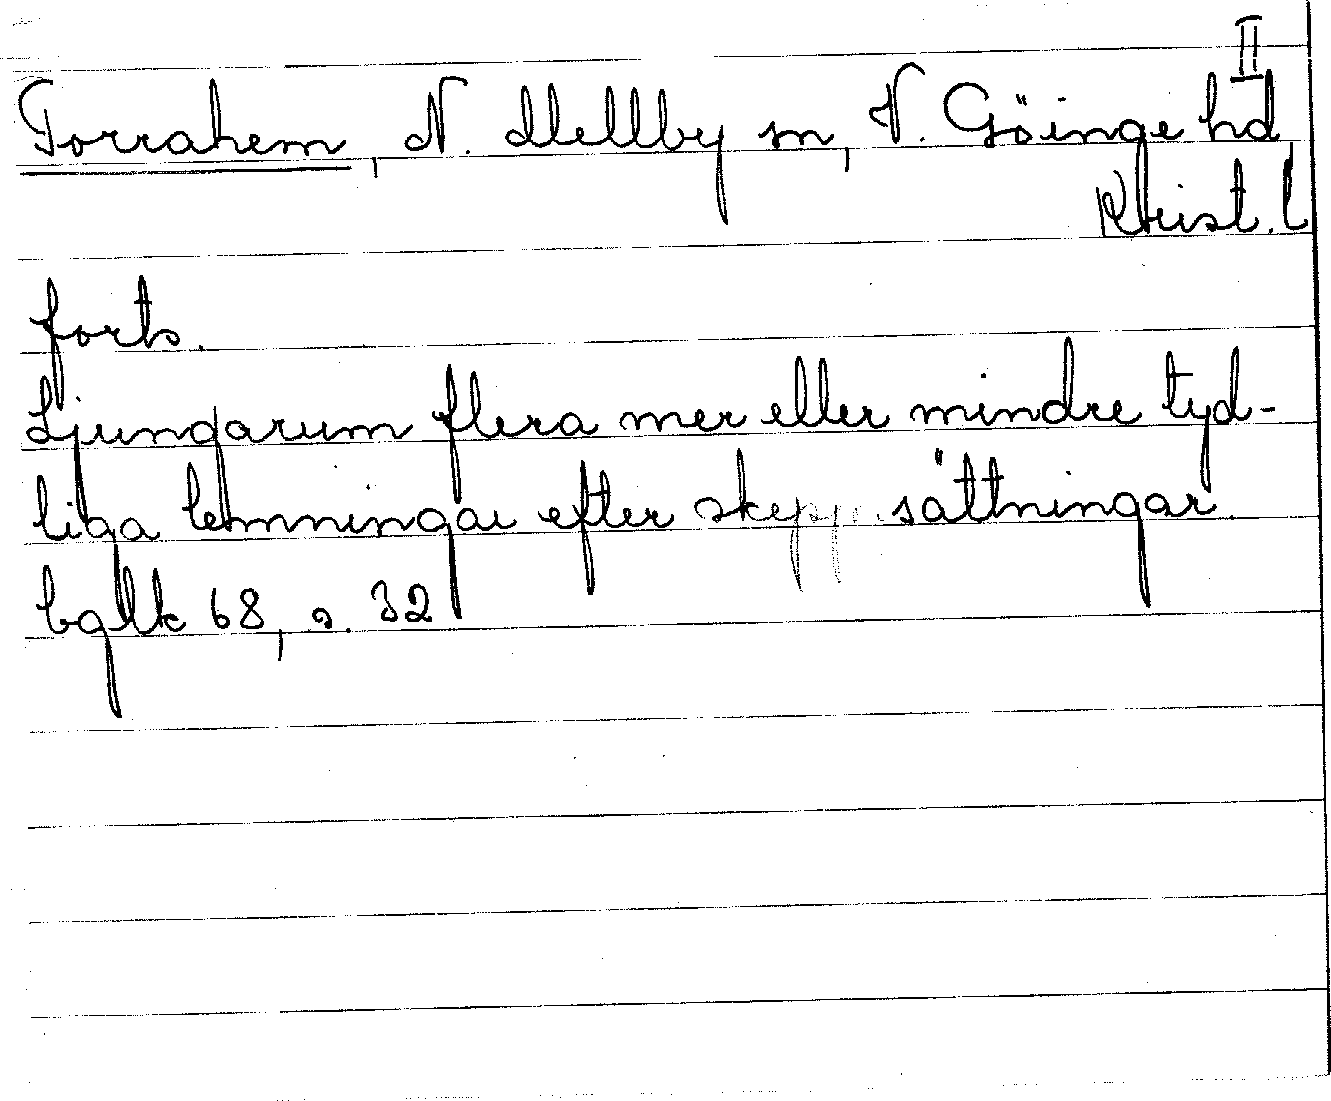 II
Torrahem, N. Mellby sn, V. Göinge hd
Krist. l
forts.
Ljungarum flera mer eller mindre tyd-
liga lemningar efter skeppssättningar.
bglk 68, s. 32